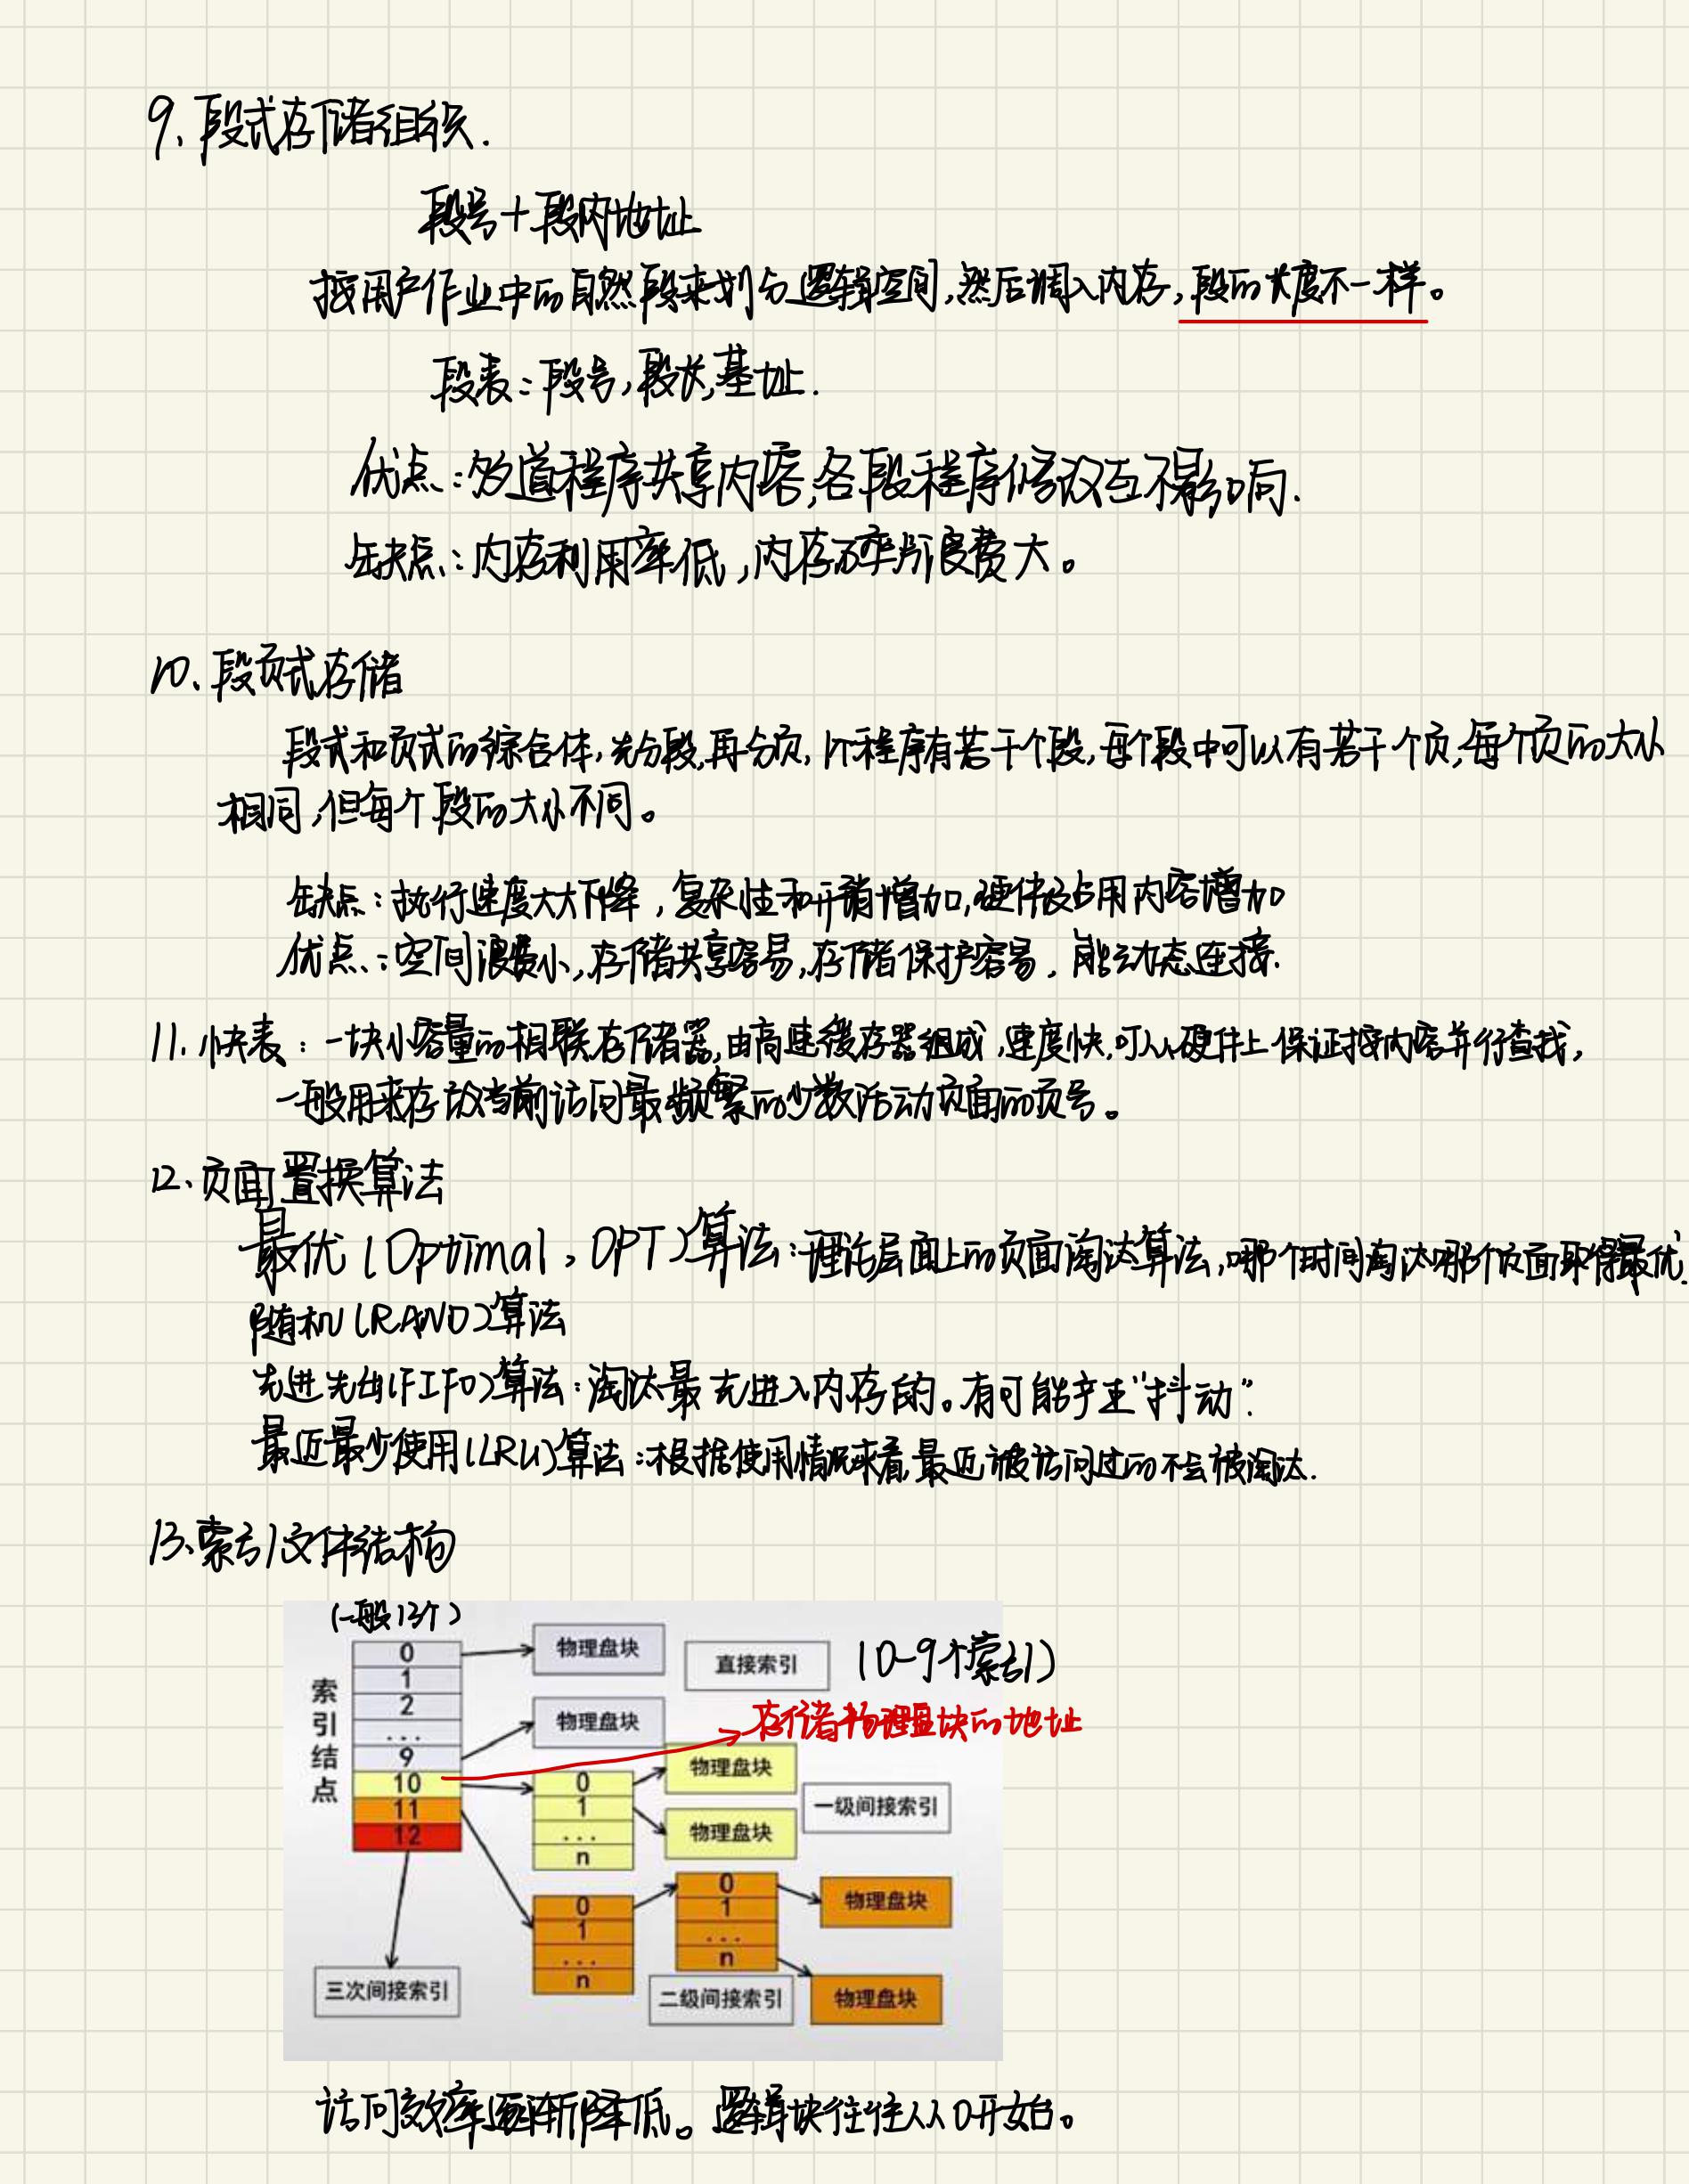 9. 段式存储组织.
段号+段内地址
按用户作业中的自然段来划分逻辑空间,然后调入内存,段的长度不一样。
段表:段号,段长,基址.
优点:多道程序共享内容,各段程序修改互不影响.
缺点:内存利用率低,内存碎片浪费大。
10.段页式存储
段式和页式的综合体,先分段,再分页,1个程序有若干个段,每个段中可以有若干个页,每个页的大小
相同,但每个段的大小不同。
缺点:执行速度大大下降,复杂性和开销增加,硬件及占用内容增加
优点:空间浪费小,存储共享容易,存储保护容易,能动态连接.
11.快表:一块小容量的相联存储器,由高速缓存器组成,速度快,可以从硬件上保证按内容并行查找,
一般用来存放当前访问最频繁的少数活动页面的页号。
12.页面置换算法
最优(Optimal,OPT)算法:理论层面上的页面淘汰算法,哪个时间淘汰哪个页面取得最优.
随机(RAND)算法
先进先出(FIFO)算法:淘汰最先进入内存的。有可能产生"抖动".
最近最少使用(LRU)算法:根据使用情况来看,最近被访问过的不会被淘汰.
13.索引文件结构
(一般13个)
索引结点
0
1
2
...
9
10
11
12
物理盘块
直接索引
(0-9个索引)
物理盘块
存储物理盘块的地址
0
1
...
n
物理盘块
物理盘块
一级间接索引
0
1
...
n
0
1
...
n
物理盘块
物理盘块
二级间接索引
三次间接索引
访问效率逐渐降低。逻辑块往往从0开始。